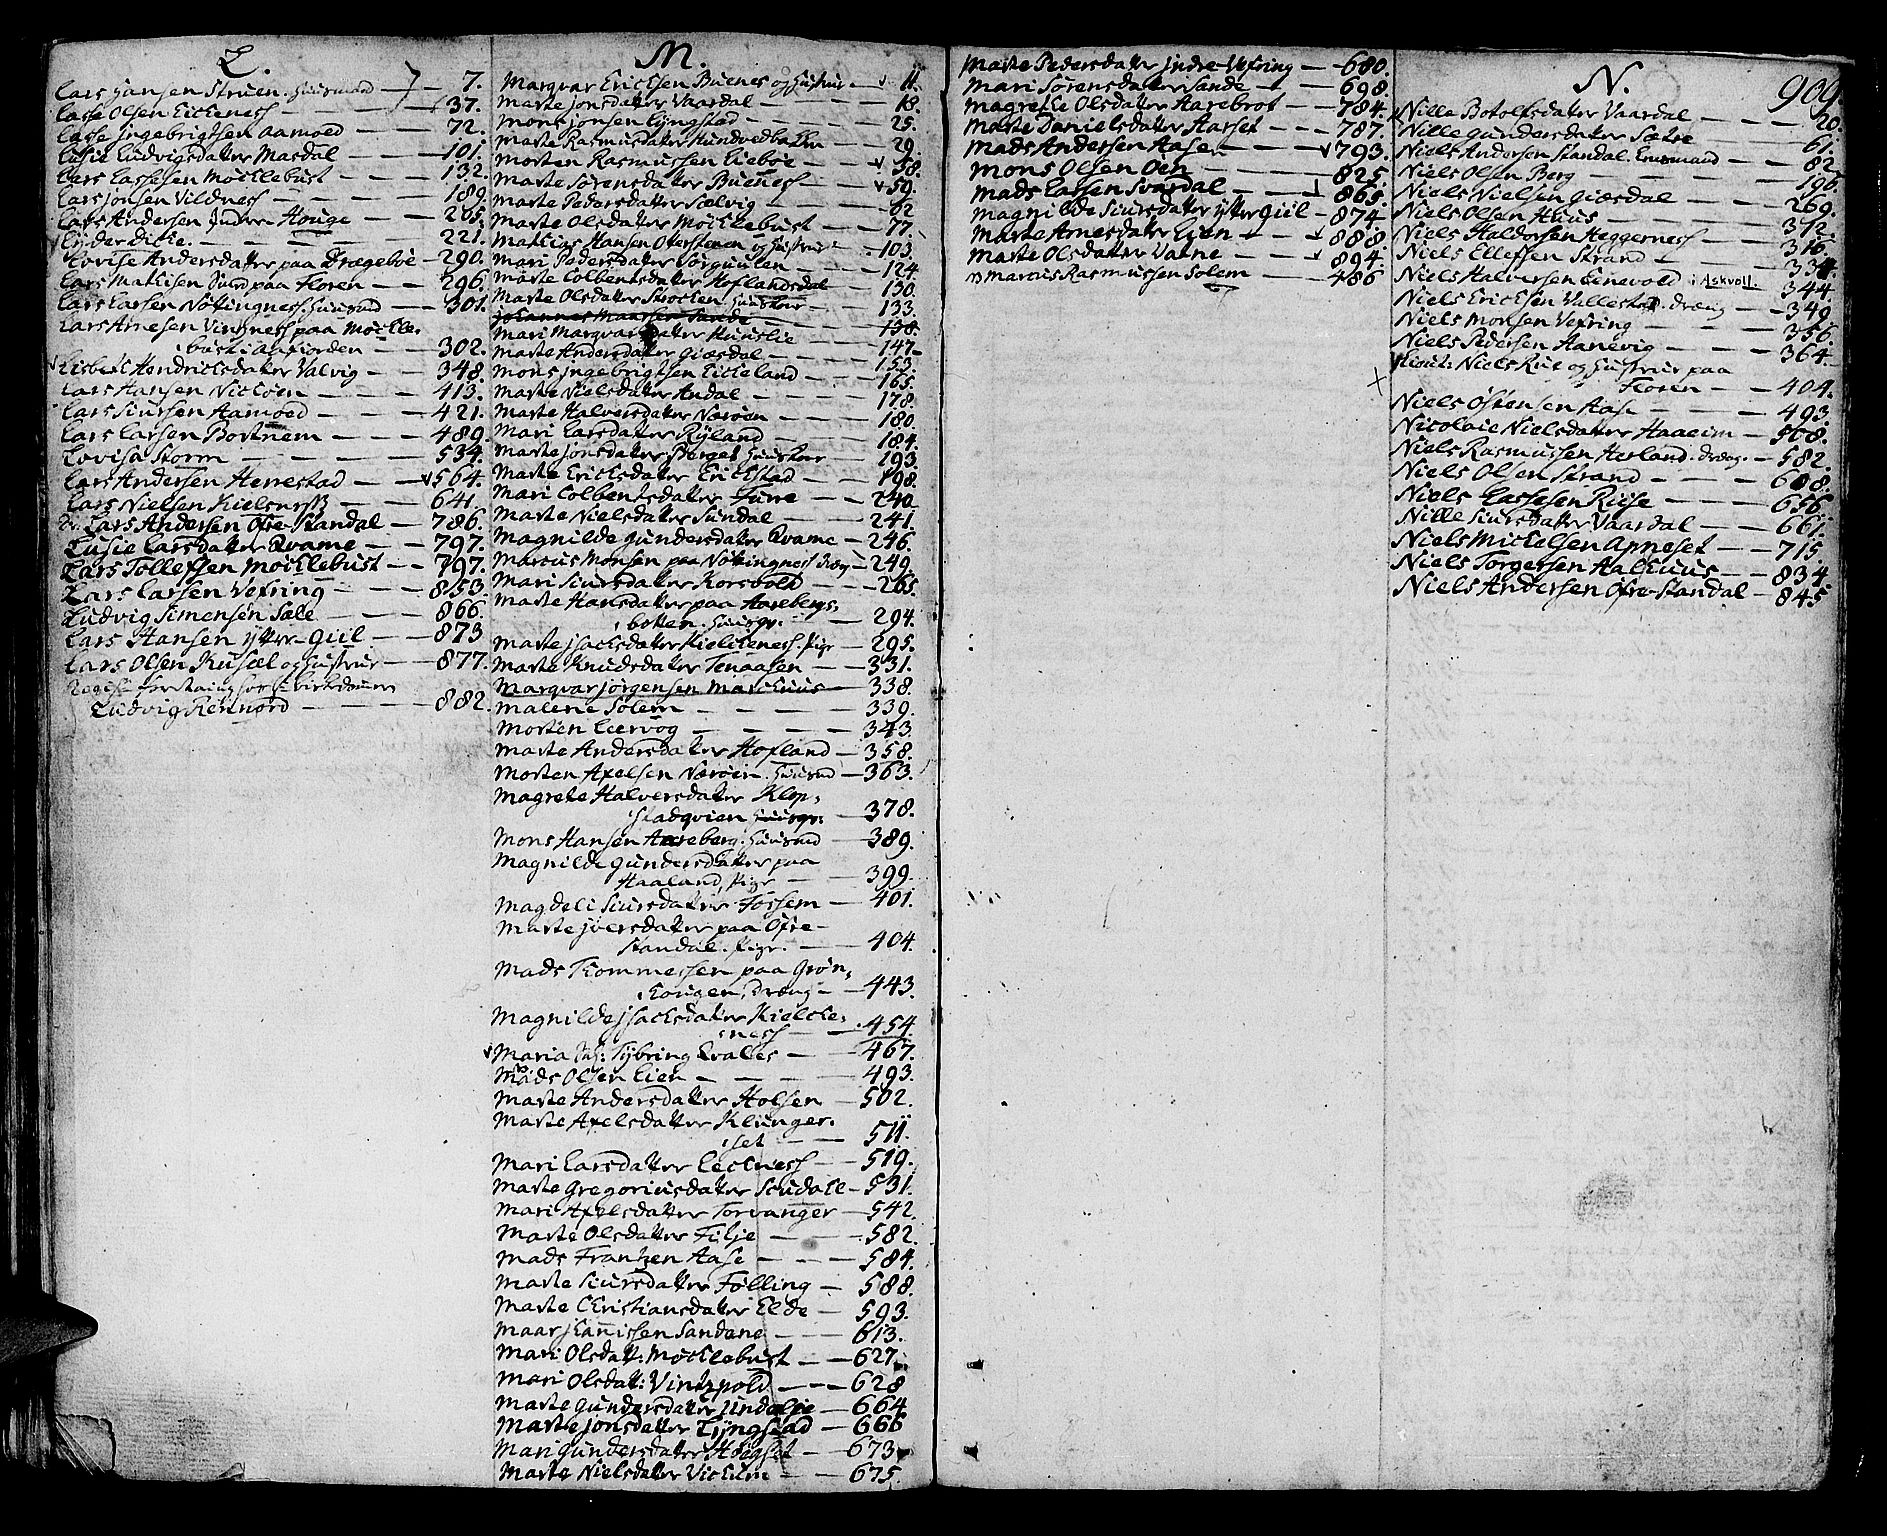 L.
Lars Hansen Struen. Huusmand — 7.
Lasse Olsen Eickeness — 37.
Lasse Ingebrigtsen Aamoed — 72.
Lusie Ludvigsdatter Masdal — 101.
Lars Lassesen Möcklebust — 132.
Lars Jonsen Vildness — 189.
Lars Andersen Indre Houge — 205.
— 221.
Lovise Andersdatter paa Frægeboe — 290.
Lars Mathisen paa Floren — 296.
Lars Larsen Nöttingness. Huusmd — 301.
Lars Arnesen Vingness paa Möckle-
bust i Aafjorden — 302.
Lisbeht Hendricksdatter Valvig — 348.
Lars Hansen — 413.
Lars Siursen Aamoed — 421.
Lars Larsen Bortnem — 489.
Lovisa Storm — 534.
Lars Andersen Hennestad — 564.
Lars Nielsen Kielsness — 641.
Lars Andersen Öfre-Standal — 786.
Lusie Larsdatter Qvame — 797.
Lars Tollefsen Möcklebust — 797.
Lars Larsen Vefring — 853.
Ludvig Simensen Sæle — 866.
Lars Hansen ytter-Guil — 873
Lars Olsen Kusæl og Hustrue — 877.
Ludvig Rennord — 882.
M.
Marqvar Ericksen Buenes og Hustrue — 11.
Marte Jonsdatter Vaardal — 18.
Mons Jonsen Lyngstad — 25.
Marte Rasmusdatter Hundvedbacken — 29.
Morten Rasmussen Lieboe — 38.
Marte Sörensdatter Bueness — 59.
Marte Pedersdatter Sælvig — 62
Marte Olsdatter Möcklebust — 77.
Mathias Hansen Oversteven og Hustrue — 103.
Mari Pedersdatter Sörgulen — 124
Marte Colbentsdatter Hoflandsdal — 130.
Marte Olsdatter Strocken Huuskar — 133.
Johannes Maarsen Sande — 138.
Mari Marqvardatter Huuslie — 147
Marte Andersdatter Giæsdal — 153.
Mons Ingebrigtsen Eickeland — 165.
Marte Nielsdatter Andal — 178
Marte Halversdatter Næröen — 180.
Mari Larsdatter Ryland — 184.
Marte Jonsdatter Berget Huuskar — 193.
Marte Ericksdatter Erickstad — 198.
Mari Colbentsdatter Furre — 240.
Marte Nielsdatter Sundal — 241.
Magnilde Gundersdatter Qvame — 246.
Marcus Monsen paa Nöttingness Dreng — 249.
Mari Siursdatter Korsvold — 265.
Marte Hansdatter paa Aarebergs-
botten. Huusqv. — 294.
Marte Jsacksdatter Kielckeness. Pige — 295.
Marte Knudsdatter Tenaasen — 331.
Marqvar Jörgensen Marckuus — 338.
Malene Solem — 339.
Morten Leervog — 343.
Marte Andersdatter Hofland — 358.
Morten Axelsen Næröen. Huusmd — 363.
Magrete Halversdatter Klop-
stadqvien Huusqv. — 378.
Mons Hansen Aareberg. Huusmd — 389.
Magnilde Gundersdatter paa
Haaland, Pige — 399.
Magdeli Siursdatter Fossem — 401.
Marte Joersdatter paa Öfre-
Standal. Pige. — 404.
Mads Thommessen paa Grön-
hougen, Dreng — 443.
Magnilde Jsacksdatter Kielcke-
ness — 454.
Maria Tybring Qvalles — 467.
Mads Olsen Lien — 493.
Marte Andersdatter Holsen — 502.
Marte Axelsdatter Klunger-
set — 511.
Mari Larsdatter Leckness — 519.
Marte Gregoriusdatter Scudale — 531.
Mari Axelsdatter Torvanger — 542.
Marte Olsdatter Filje — 582.
Mads Frantzen Aase — 584.
Marte Siursdatter Fölling — 588.
Marte Christiansdatter Elde — 593.
Maar Johannissen Sandene — 613.
Mari Olsdatt: Möcklebust — 627.
Mari Olsdatt: Vintzpold — 628
Marte Gundersdatter Jndalie — 664
Marte Jonsdatter Lyngstad — 666
Mari Gundersdatter Höegset — 673
Marte Nielsdatter — 675.
Marte Pedersdatter Jndre-Vefring — 680.
Mari Sörensdatter Sande — 698.
Magrethe Olsdatter Aarebrot — 784.
Marte Danielsdatter Aarset — 787.
Mads Andersen Aasen — 793.
Mons Olsen Öen — 825.
Mads Larsen Svardal — 865.
Magnilde Siursdatter ytter Guil — 874.
Marte Arnesdatter Lien — 888.
Marte Olsdatter Vatne — 894
Marcus Rasmussen Solem — 486
N.
909.
Nille Botolfsdatter Vaardal — 20.
Nille Gundersdatter Sætre — 61.
Niels Andersen Standal. Huusmand — 82
Niels Olsen Berg — 196.
Niels Nielsen Giæsdal — 269.
Niels Olsen Huus — 312.
Niels Haldorsen Heggerness — 316.
Niels Ellefsen Strand — 334.
Niels Halversen Einevold i Askvoll. — 344.
Niels Ericksen Vallestad. dreng — 349
Niels Monsen Vefring — 356.
Niels Pedersen Aanevig — 364.
Lieut: Niels Rus og Hustrue paa
Floren — 404.
Niels Östensen Aase — 493.
Nicolaie Nielsdatter Haaeim — 508.
Niels Rasmussen Aarland. dreng. — 582.
Niels Olsen Strand — 608.
Niels Lassesen Riise — 656.
Nille Siursdatter Vaardal — 661.
Niels Mickelsen Apneset — 715
Niels Torgersen Aalhuus — 834.
Niels Andersen Öfre-Standal — 845